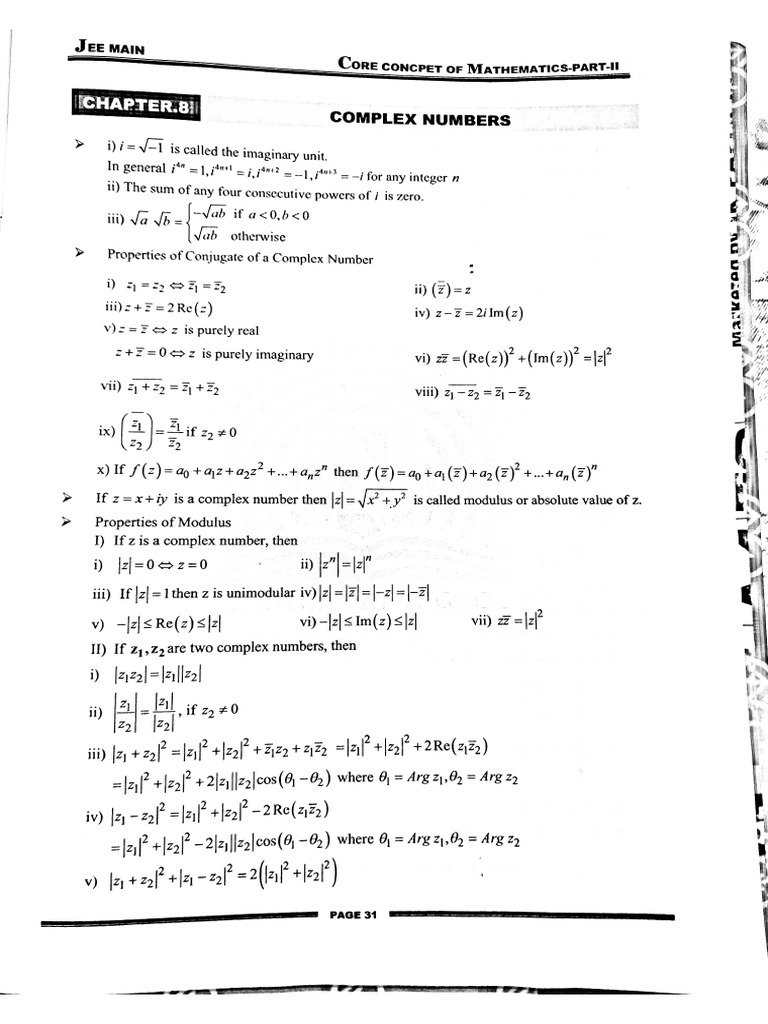 JEE MAIN
CORE CONCPET OF MATHEMATICS-PART-II
CHAPTER.8
COMPLEX NUMBERS
➢ i) i = √−1 is called the imaginary unit.
In general i⁴ⁿ = 1, i⁴ⁿ⁺¹ = i, i⁴ⁿ⁺² = −1, i⁴ⁿ⁺³ = −i for any integer n
ii) The sum of any four consecutive powers of i is zero.
iii) √a √b = { −√ab if a < 0, b < 0
√ab otherwise
➢ Properties of Conjugate of a Complex Number
i) z₁ = z₂ ⇔ z̅₁ = z̅₂ ii) \overline{(z̅)} = z
iii) z + z̅ = 2 Re(z) iv) z − z̅ = 2i Im(z)
v) z = z̅ ⇔ z is purely real
z + z̅ = 0 ⇔ z is purely imaginary vi) zz̅ = (Re(z))² + (Im(z))² = |z|²
vii) \overline{z₁ + z₂} = z̅₁ + z̅₂ viii) \overline{z₁ − z₂} = z̅₁ − z̅₂
ix) \overline{(z₁/z₂)} = z̅₁/z̅₂ if z₂ ≠ 0
x) If f(z) = a₀ + a₁z + a₂z² + ... + aₙzⁿ then f(z̅) = a₀ + a₁(z̅) + a₂(z̅)² + ... + aₙ(z̅)ⁿ
➢ If z = x + iy is a complex number then |z| = √(x² + y²) is called modulus or absolute value of z.
➢ Properties of Modulus
I) If z is a complex number, then
i) |z| = 0 ⇔ z = 0 ii) |zⁿ| = |z|ⁿ
iii) If |z| = 1 then z is unimodular iv) |z| = |z̅| = |−z| = |−z̅|
v) −|z| ≤ Re(z) ≤ |z| vi) −|z| ≤ Im(z) ≤ |z| vii) zz̅ = |z|²
II) If z₁, z₂ are two complex numbers, then
i) |z₁z₂| = |z₁||z₂|
ii) |z₁/z₂| = |z₁|/|z₂|, if z₂ ≠ 0
iii) |z₁ + z₂|² = |z₁|² + |z₂|² + z̅₁z₂ + z₁z̅₂ = |z₁|² + |z₂|² + 2 Re(z₁z̅₂)
= |z₁|² + |z₂|² + 2|z₁||z₂| cos(θ₁ − θ₂) where θ₁ = Arg z₁, θ₂ = Arg z₂
iv) |z₁ − z₂|² = |z₁|² + |z₂|² − 2 Re(z₁z̅₂)
= |z₁|² + |z₂|² − 2|z₁||z₂| cos(θ₁ − θ₂) where θ₁ = Arg z₁, θ₂ = Arg z₂
v) |z₁ + z₂|² + |z₁ − z₂|² = 2(|z₁|² + |z₂|²)
PAGE 31
Marketed by